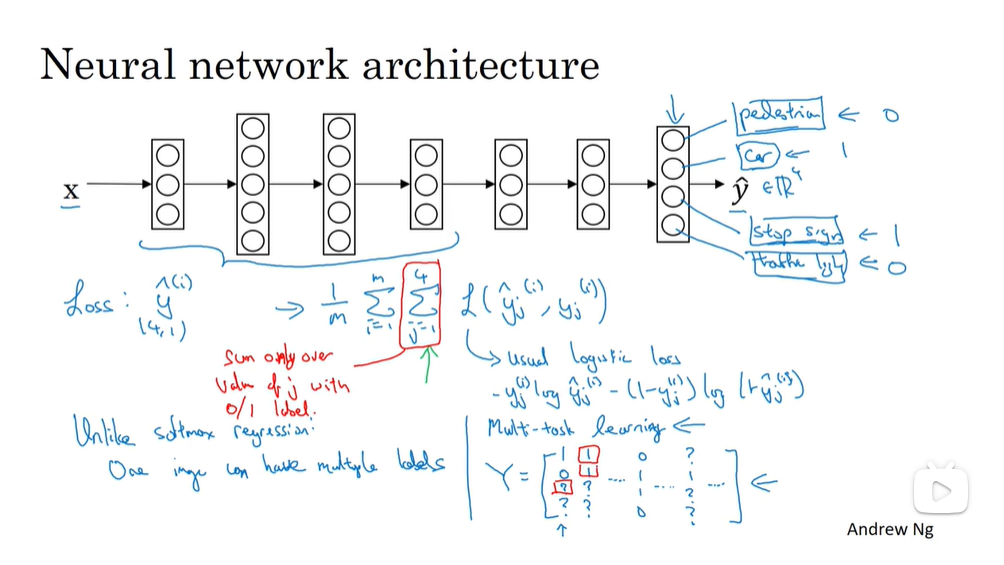 Neural network architecture
pedestrian ← 0
car ← 1
x
ŷ ∈ ℝ⁴
stop sign ← 1
traffic light ← 0
Loss: ŷ^(i) → 1/m Σ_{i=1}^{m} Σ_{j=1}^{4} L(ŷ_j^(i), y_j^(i))
(4,1)
Sum only over
value of j with
0/1 label.
usual logistic loss
- y_j^(i) log ŷ_j^(i) - (1-y_j^(i)) log (1-ŷ_j^(i))
Unlike softmax regression:
One image can have multiple labels
Multi-task learning ←
Y = [
1 1 0 ?
0 1 ... 1 ... 1 ...
? ? 1 ?
? ? 0 ?
] ←
Andrew Ng